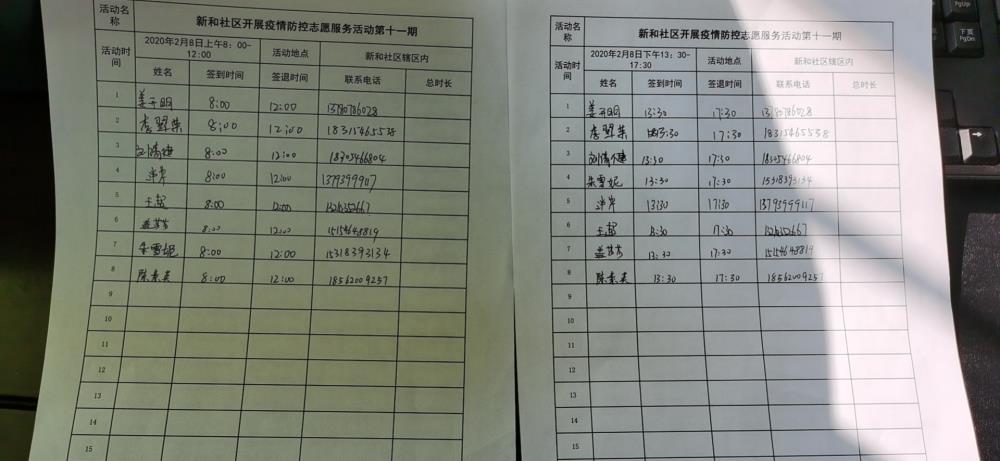 活动名称 新和社区开展疫情防控志愿服务活动第十一期
活动时间 2020年2月8日上午8：00-12:00 活动地点 新和社区辖区内
姓名 签到时间 签退时间 联系电话 总时长
1 姜开明 8:00 12:00 13780786028
2 8:00 12:00 18315465538
3 8:00 12:00 18305466804
4 8:00 12:00 13793999117
5 王超 8:00 12:00
6 盖芳芳 8:00 12:00 15154648819
7 朱雪妮 8:00 12:00 15318393134
8 陈素英 8:00 12:00 18562009257
9
10
11
12
13
14
15
活动名称 新和社区开展疫情防控志愿服务活动第十一期
活动时间 2020年2月8日下午13：30-17:30 活动地点 新和社区辖区内
姓名 签到时间 签退时间 联系电话 总时长
1 姜开明 13:30 17:30 13780786028
2 13:30 17:30 18315465538
3 13:30 17:30 18305466804
4 朱雪妮 13:30 17:30 15318393134
5 13:30 17:30 13793999117
6 王超 13:30 17:30
7 盖芳芳 13:30 17:30 15154648819
8 陈素英 13:30 17:30 18562009257
9
10
11
12
13
14
15
PgUp
下页
PgDn